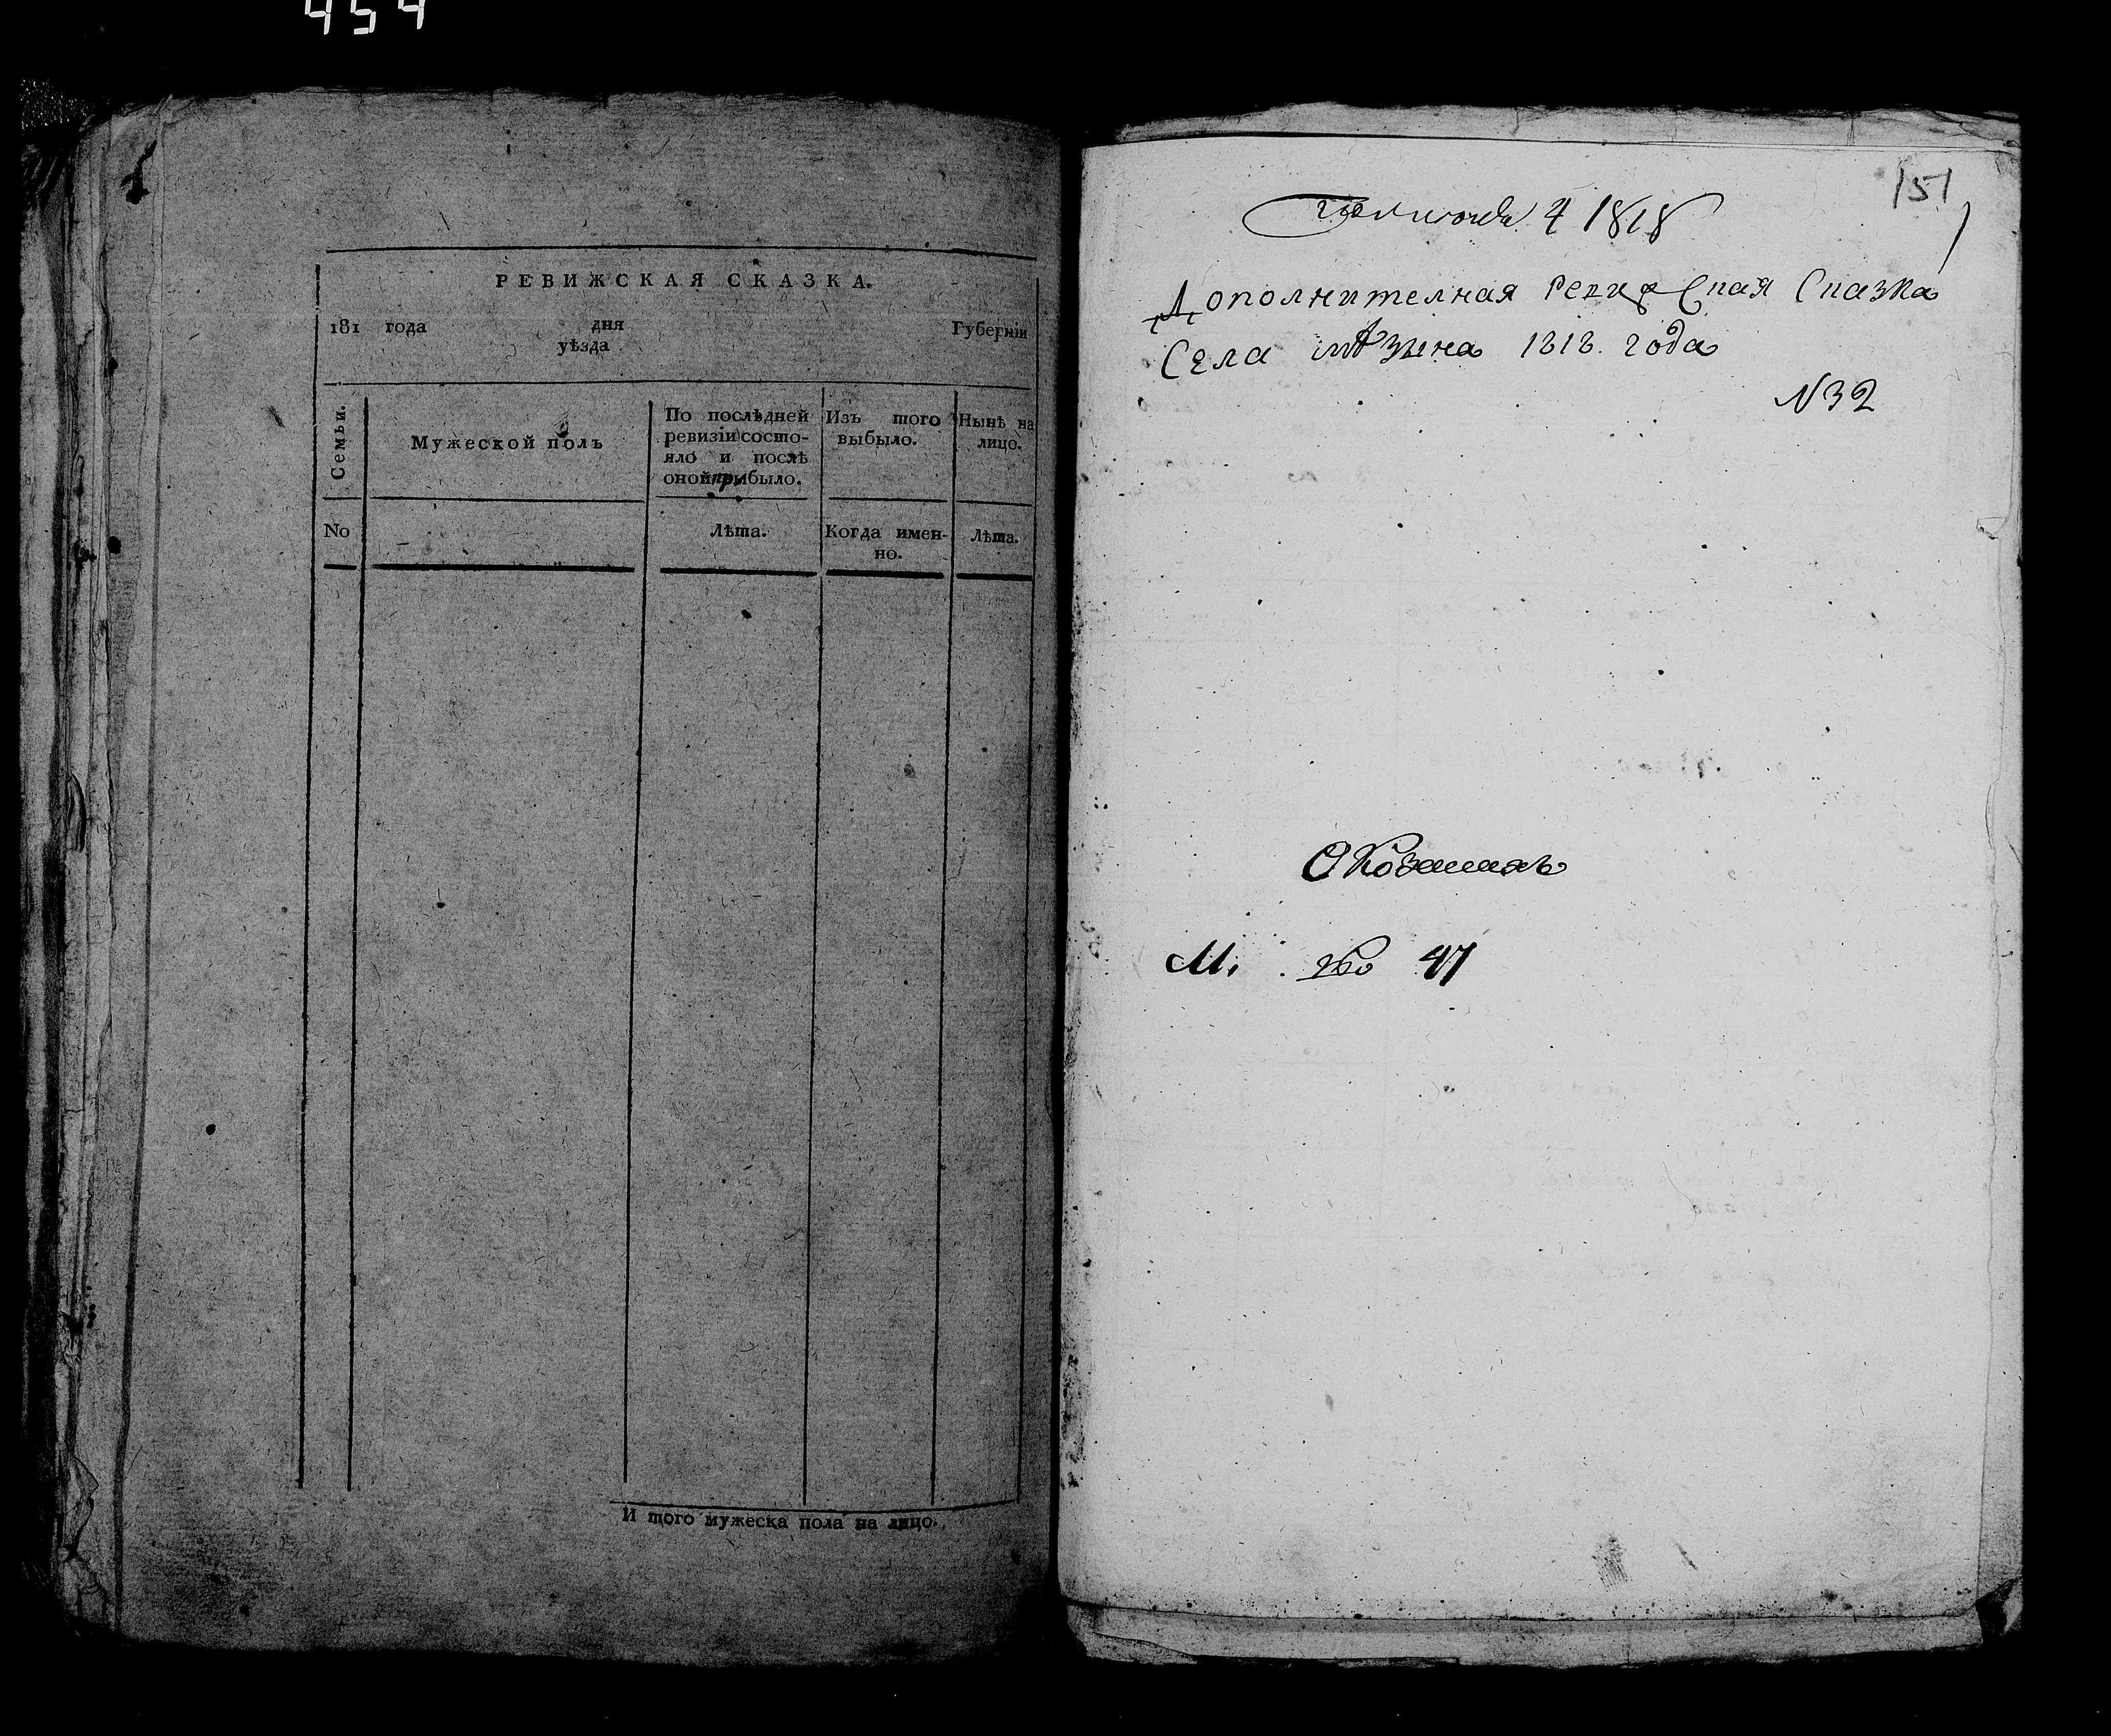 454
РЕВИЖСКАЯ СКАЗКА.
181 года дня Губерніи
уѣзда
Семьи.
Мужеской полъ
По послѣдней ревизіи состо-
яло и послѣ
оной прибыло.
Изъ того
выбыло.
Нынѣ на
лицо.
No
Лѣта.
Когда имен-
но.
Лѣта.
И того мужеска пола на лицо.
151
4 1818
Дополнителная Сказка
Села 1818. года
N32
О Козакахъ
М. 47